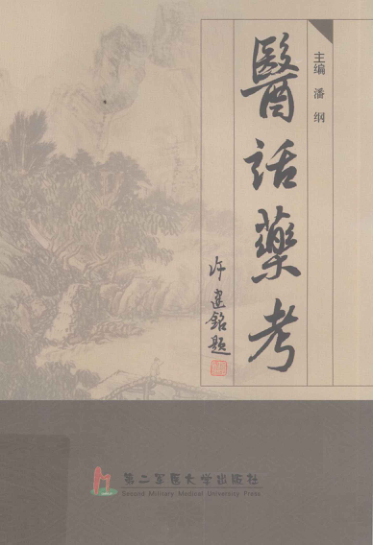 主编 潘 纲
醫話藥考
许建铭题
第二军医大学出版社
Second Military Medical University Press